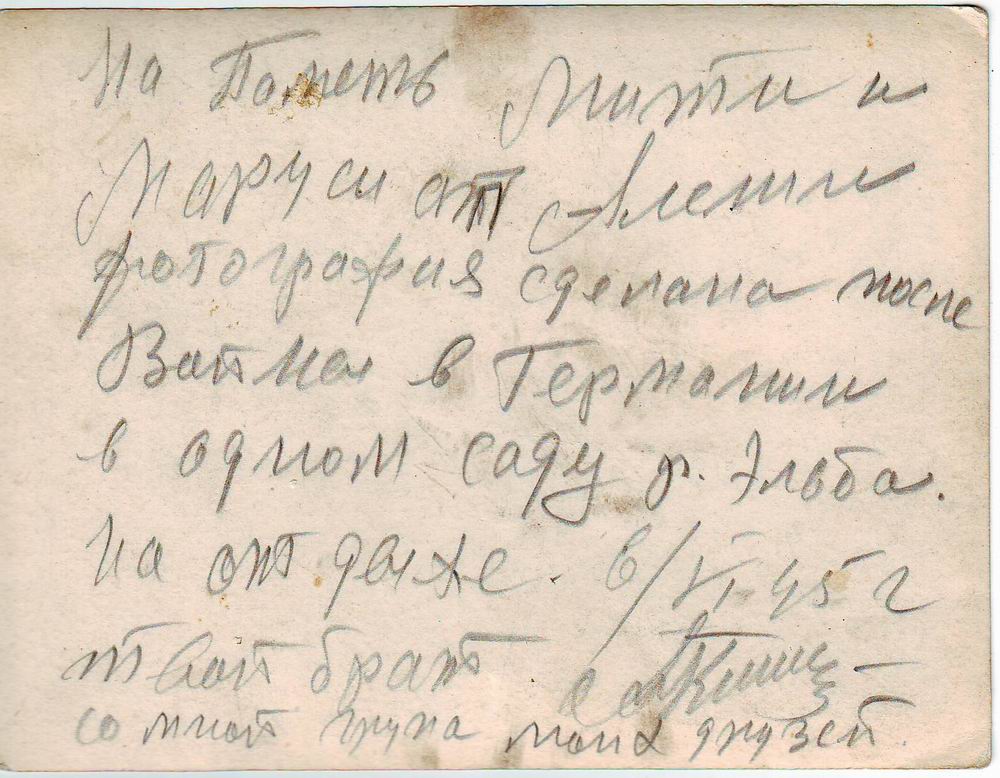 На Память Мити и
Маруси от Алеши
фотография сделана после
Войны в Германии
в одном саду р. Эльба.
На отдыхе. 6/VI 45 г
твой брат
со мной група моих друзей.